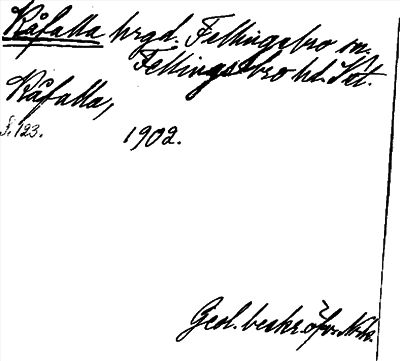 Råfalla hrgd. Fellingsbro sn.
Fellingsbro hd. Vstm.
Råfalla,
S. 123. 1902.
Geol. beskr. öfv.